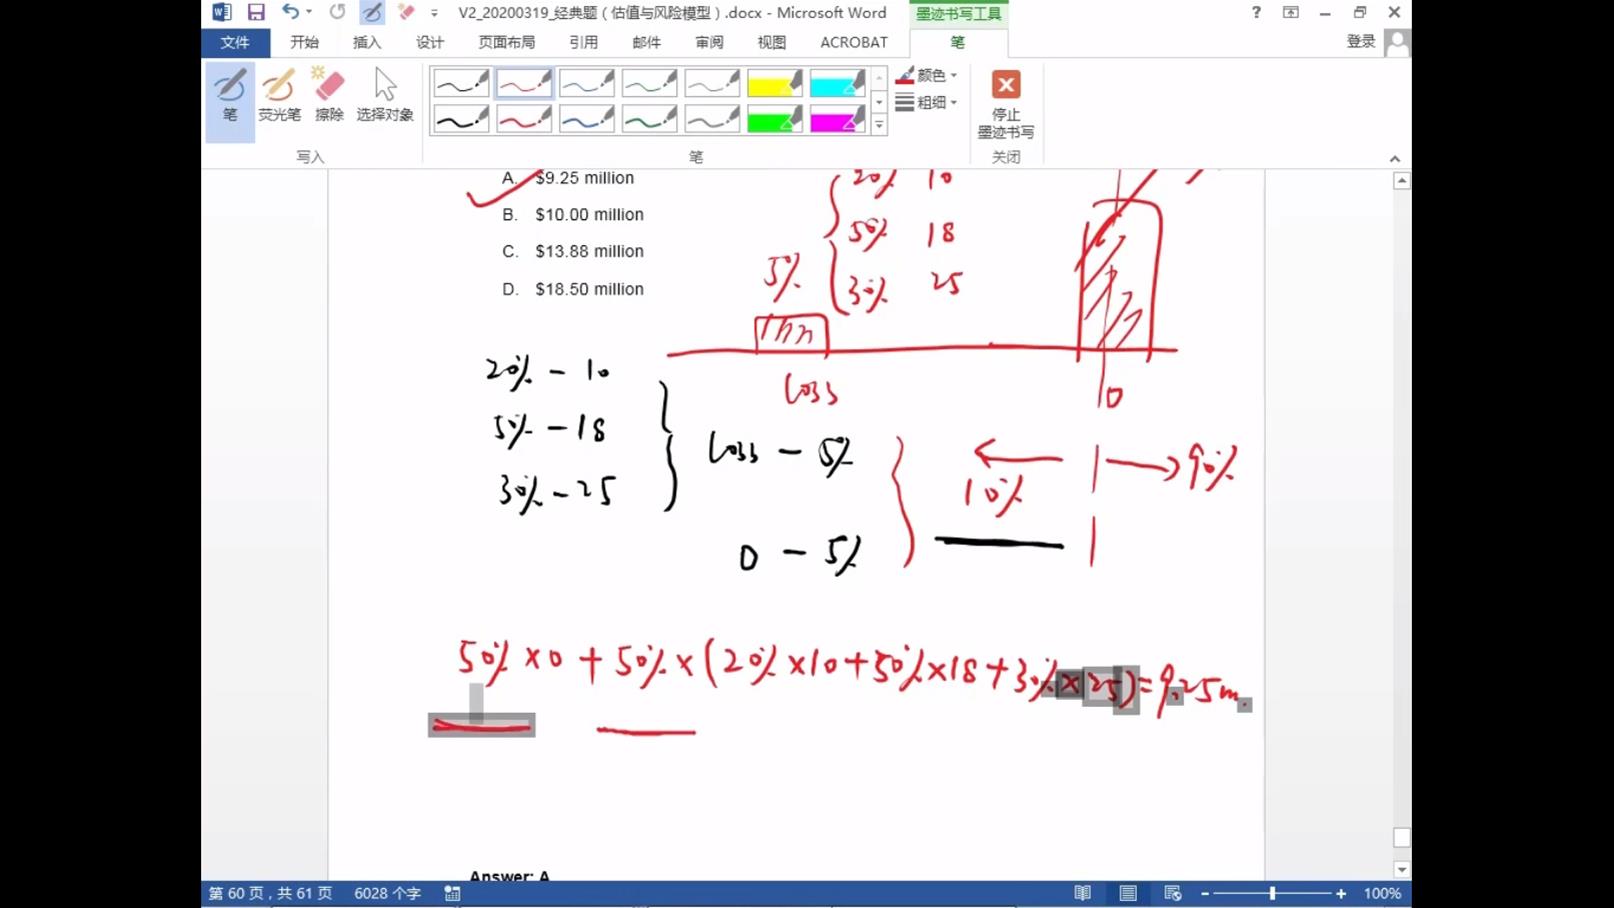 V2_20200319_经典题（估值与风险模型）.docx - Microsoft Word
墨迹书写工具
?
文件 开始 插入 设计 页面布局 引用 邮件 审阅 视图 ACROBAT 笔 登录
笔 荧光笔 擦除 选择对象
颜色
粗细
停止
墨迹书写
写入 笔 关闭
A. $9.25 million
B. $10.00 million
C. $13.88 million
D. $18.50 million
20% 10
50% 18
5%
30% 25
loss
0
20% - 10
5% - 18
30% - 25
loss - 5%
0 - 5%
10%
90%
50% × 0 + 50% × (20% × 10 + 50% × 18 + 30% × 25) = 9.25m.
Answer: A
第 60 页，共 61 页 6028 个字 100%